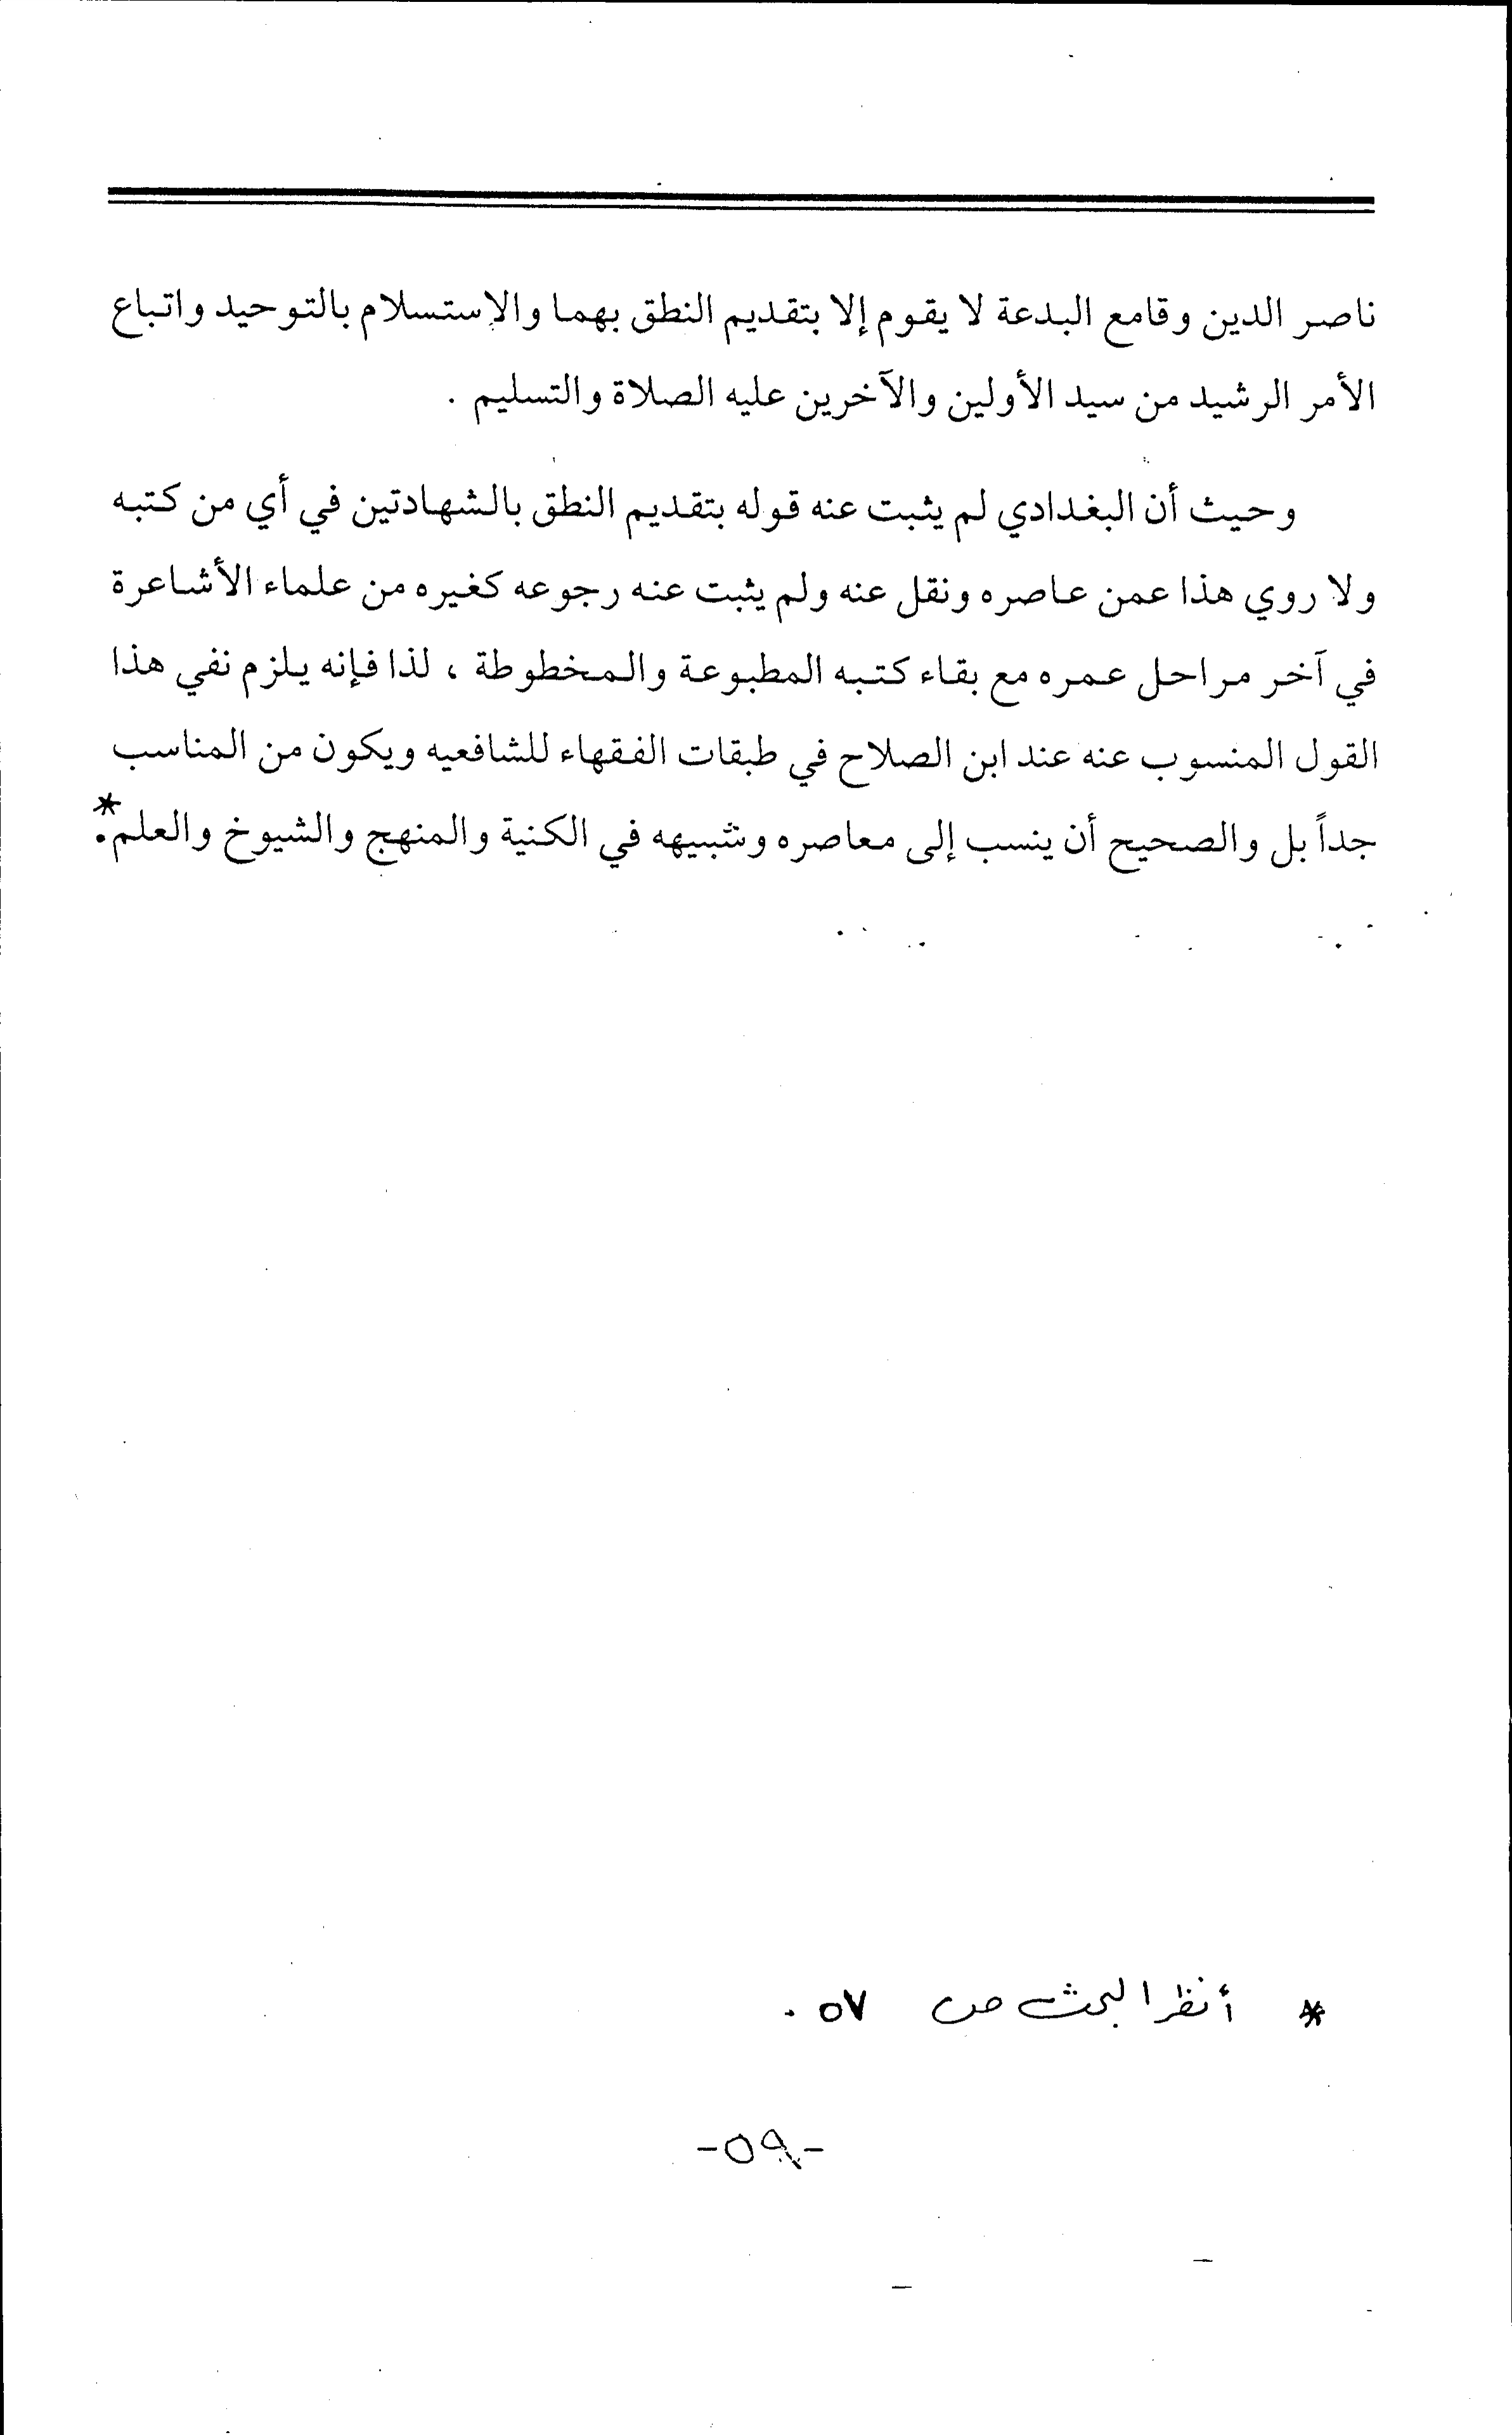 ناصر الدين وقامع البدعة لا يقوم إلا بتقديم النطق بهما والإستسلام بالتوحيد واتباع
الأمر الرشيد من سيد الأولين والآخرين عليه الصلاة والتسليم .
وحيث أن البغدادي لم يثبت عنه قوله بتقديم النطق بالشهادتين في أي من كتبه
ولا روي هذا عمن عاصره ونقل عنه ولم يثبت عنه رجوعه كغيره من علماء الأشاعرة
في آخر مراحل عمره مع بقاء كتبه المطبوعة والمخطوطة ، لذا فإنه يلزم نفي هذا
القول المنسوب عنه عند ابن الصلاح في طبقات الفقهاء للشافعيه ويكون من المناسب
جداً بل والصحيح أن ينسب إلى معاصره وشبيهه في الكنية والمنهج والشيوخ والعلم*.
* أنظر البحث ص ٥٧ .
-٥٩-